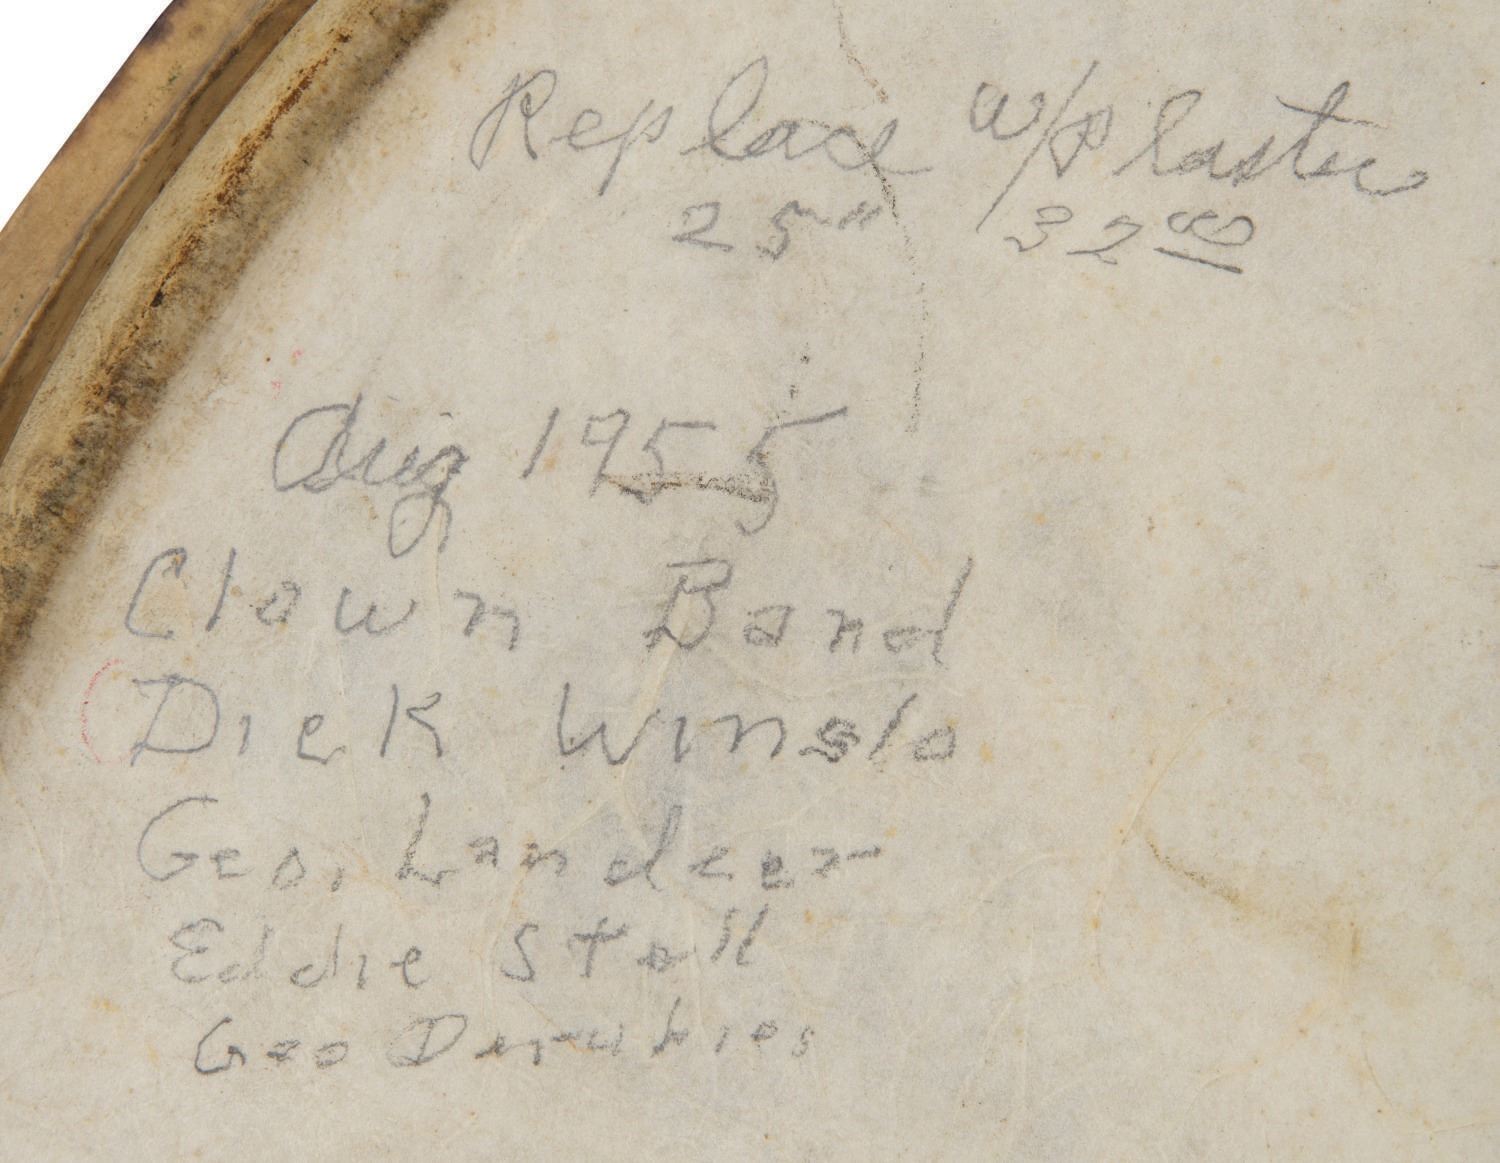 Replace w/Plaster
25" 32⁰⁰
Aug 1955
Clown Band
Dick Winslo
Geo. Landeer
Eddie Stall
Geo